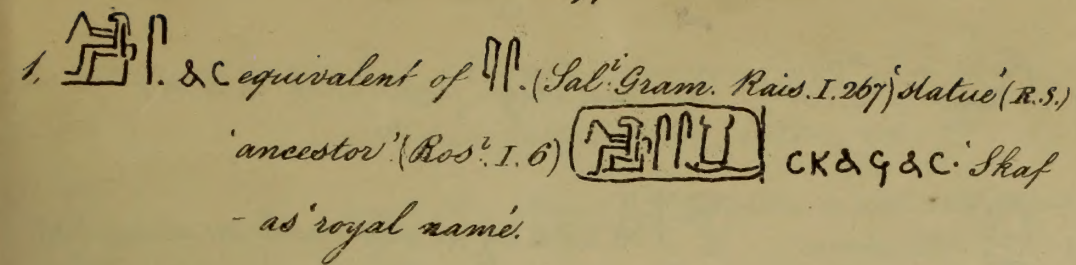 1. ⲁⲥ equivalent of 𓇋𓋴. (Salⁱ. Gram. Rais. I. 267) 'statue' (R.S.)
'ancestor' (Rosⁱ. I. 6) ⲥⲕⲁϥⲁⲥ. Skaf
- as 'royal name'.